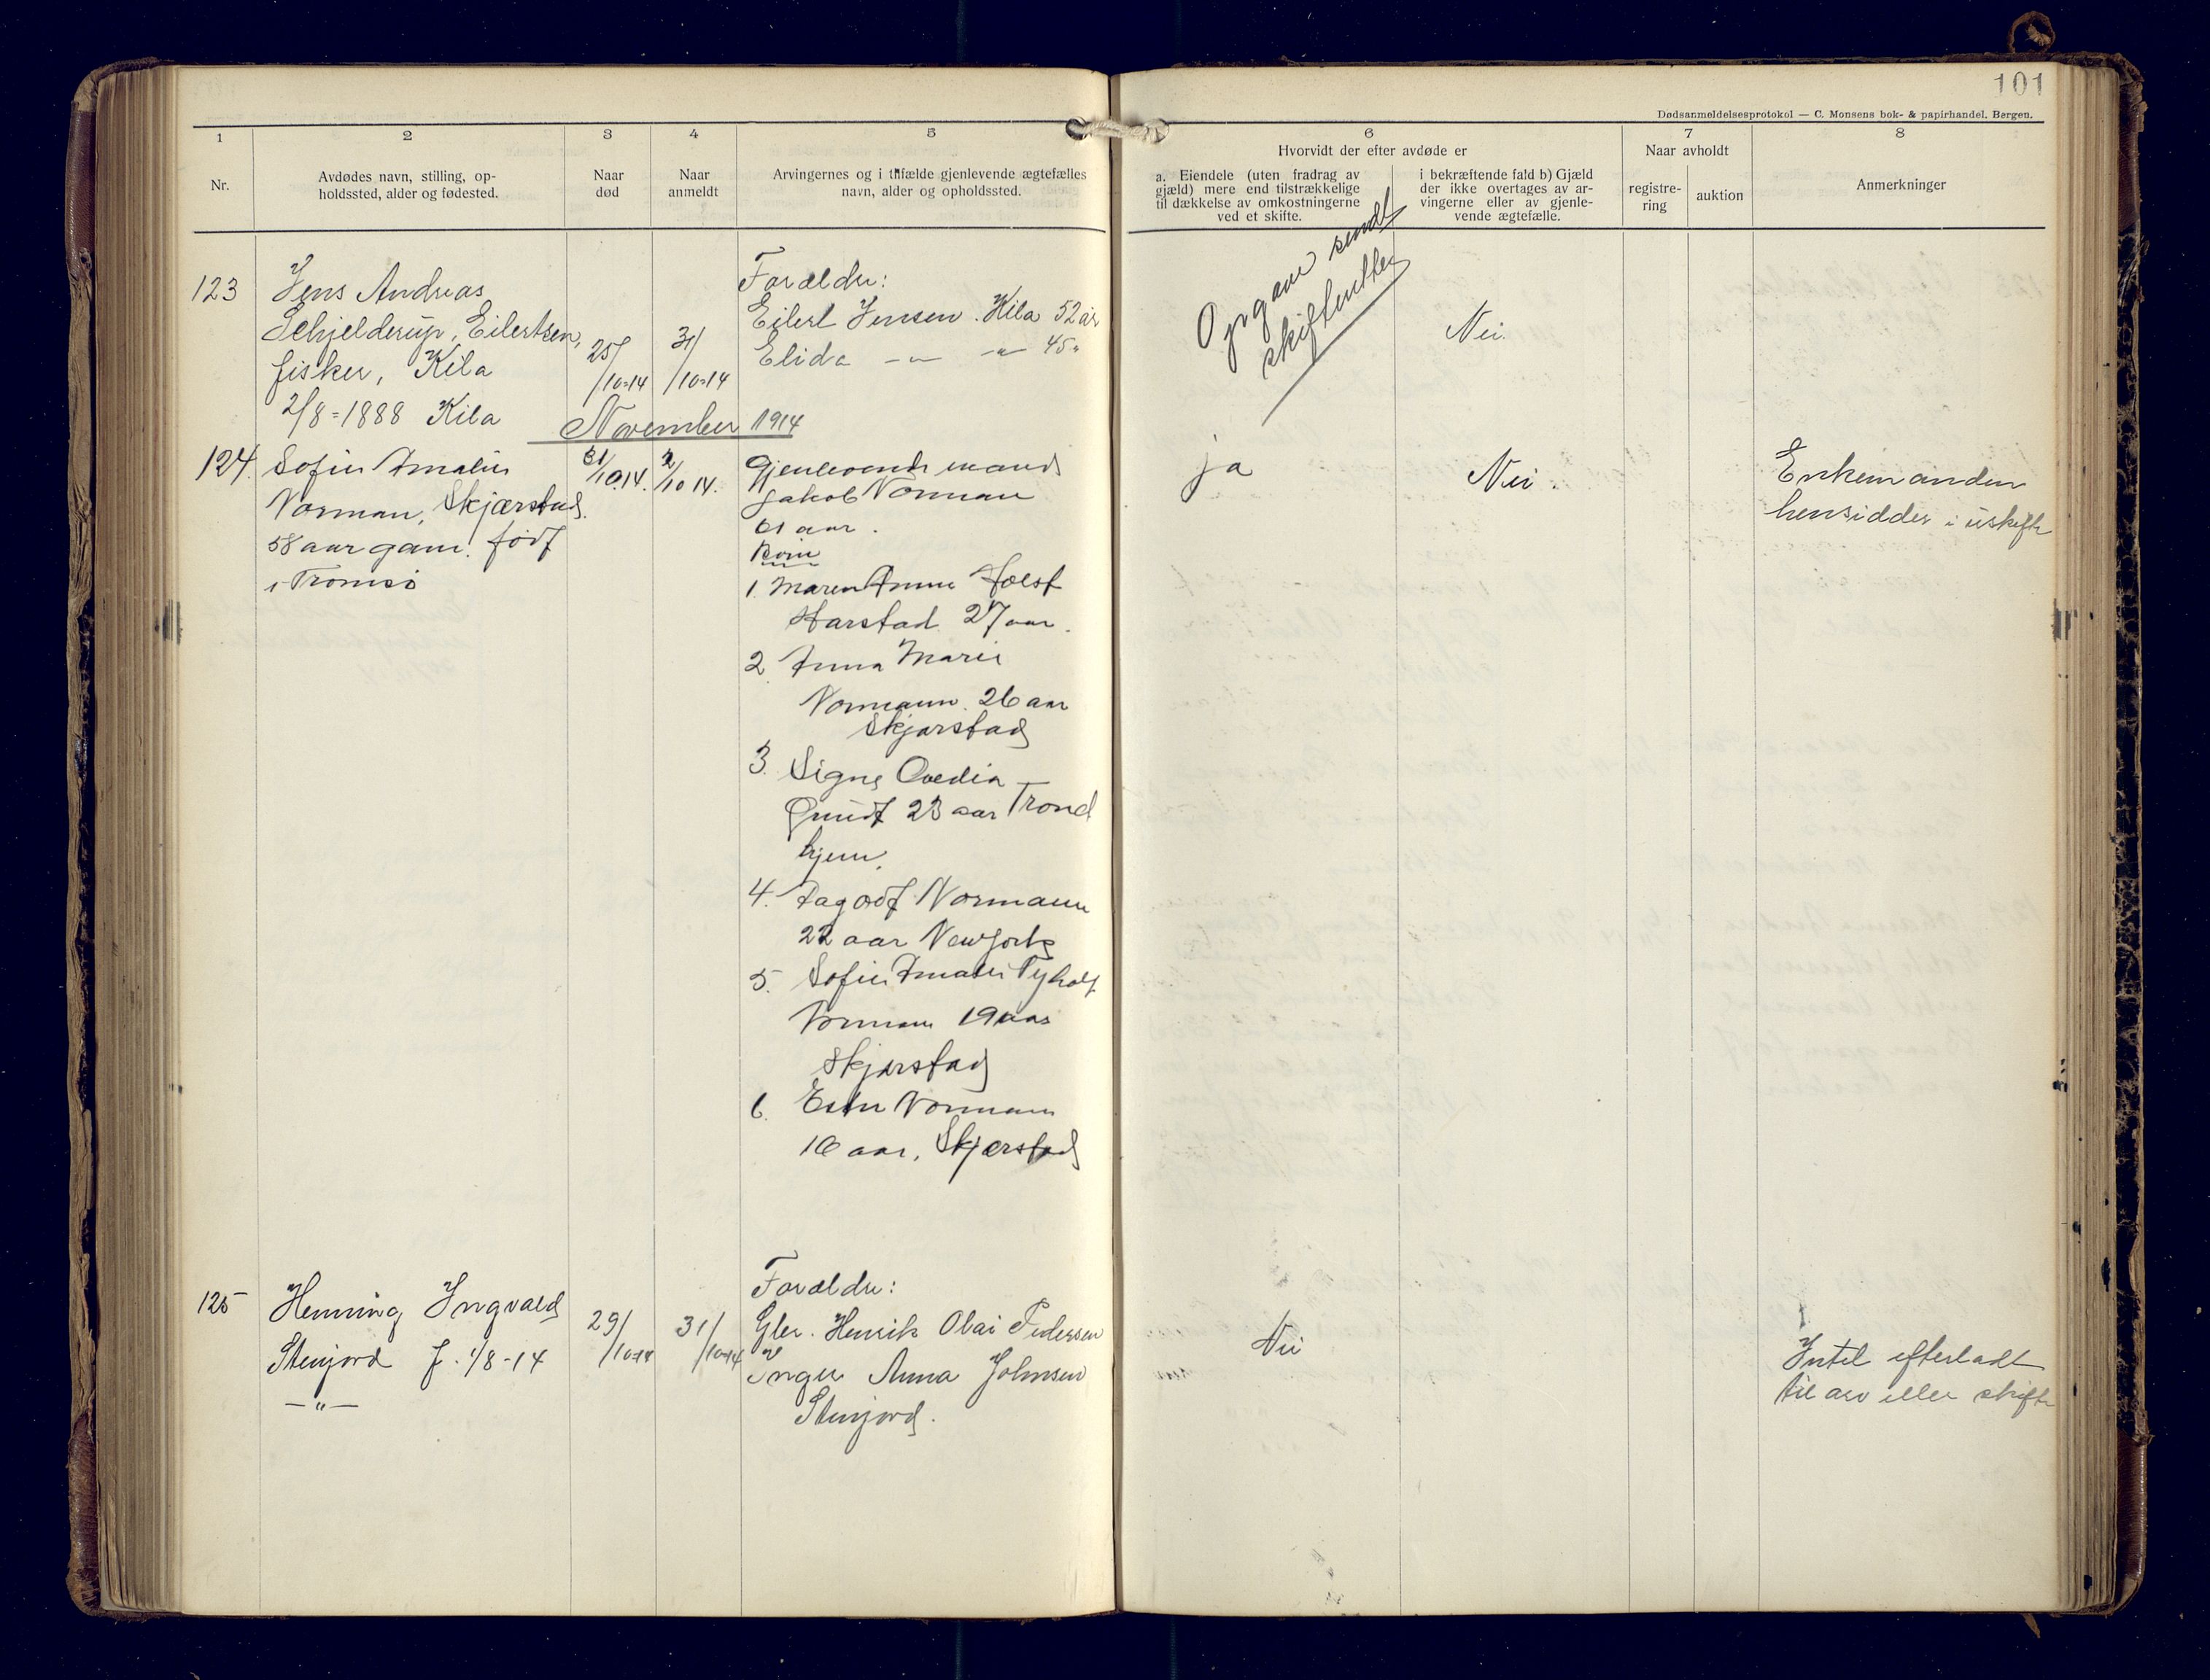 101
Dødsanmeldelsesprotokol — C. Monsens bok- & papirhandel. Bergen.
1 2 3 4 5 6 7 8
Nr.
Avdødes navn, stilling, op-
holdssted, alder og fødested.
Naar
død
Naar
anmeldt
Arvingernes og i tilfælde gjenlevende ægtefælles
navn, alder og opholdssted.
Hvorvidt der efter avdøde er
a. Eiendele (uten fradrag av
gjæld) mere end tilstrækkelige
til dækkelse av omkostningerne
ved et skifte.
i bekræftende fald b) Gjæld
der ikke overtages av ar-
vingerne eller av gjenle-
vende ægtefælle.
Naar avholdt
registre-
ring
auktion
Anmerkninger
123
Jens Andreas
Schjelderup, Eilertsen,
fisker, Kila
2/8=1888 Kila
25/
/10-14
31/
/10-14
Forældre:
Eilert Jensen. Kila 52 år
Elida —"— —"— 45 "
Opgave sendt
Nei.
November 1914
124.
Sofie Amalie
Norman, Skjærstad.
58 aar gam. født
i Tromsö
31/10.14.
2/10 14.
Gjenlevende mand
Jakob Norman
61 aar.
Børn
1. Maren Anna Holst
Harstad 27 aar.
2. Anna Marie
Normann. 26 aar
Skjærstad
3. Signe Ovedia
23 aar Trond
hjem.
4. Dagodf Normann
22 aar New York
5. Sofie Amalie
Norman 19 aar
Skjærstad
6. Ester Norman
16 aar, Skjærstad
ja
Nei.
Enkemanden
hensidder i uskifte
125
Henning Ingvald
Stenjord f. 1/8-14
—"—
29/
/10-14
31/
/10-14
Forældre:
Gbr. Henrik Olai Pedersen
Inger Anna Johnsen
Stenjord.
Nei
Intet efterladt
til arv eller skifte